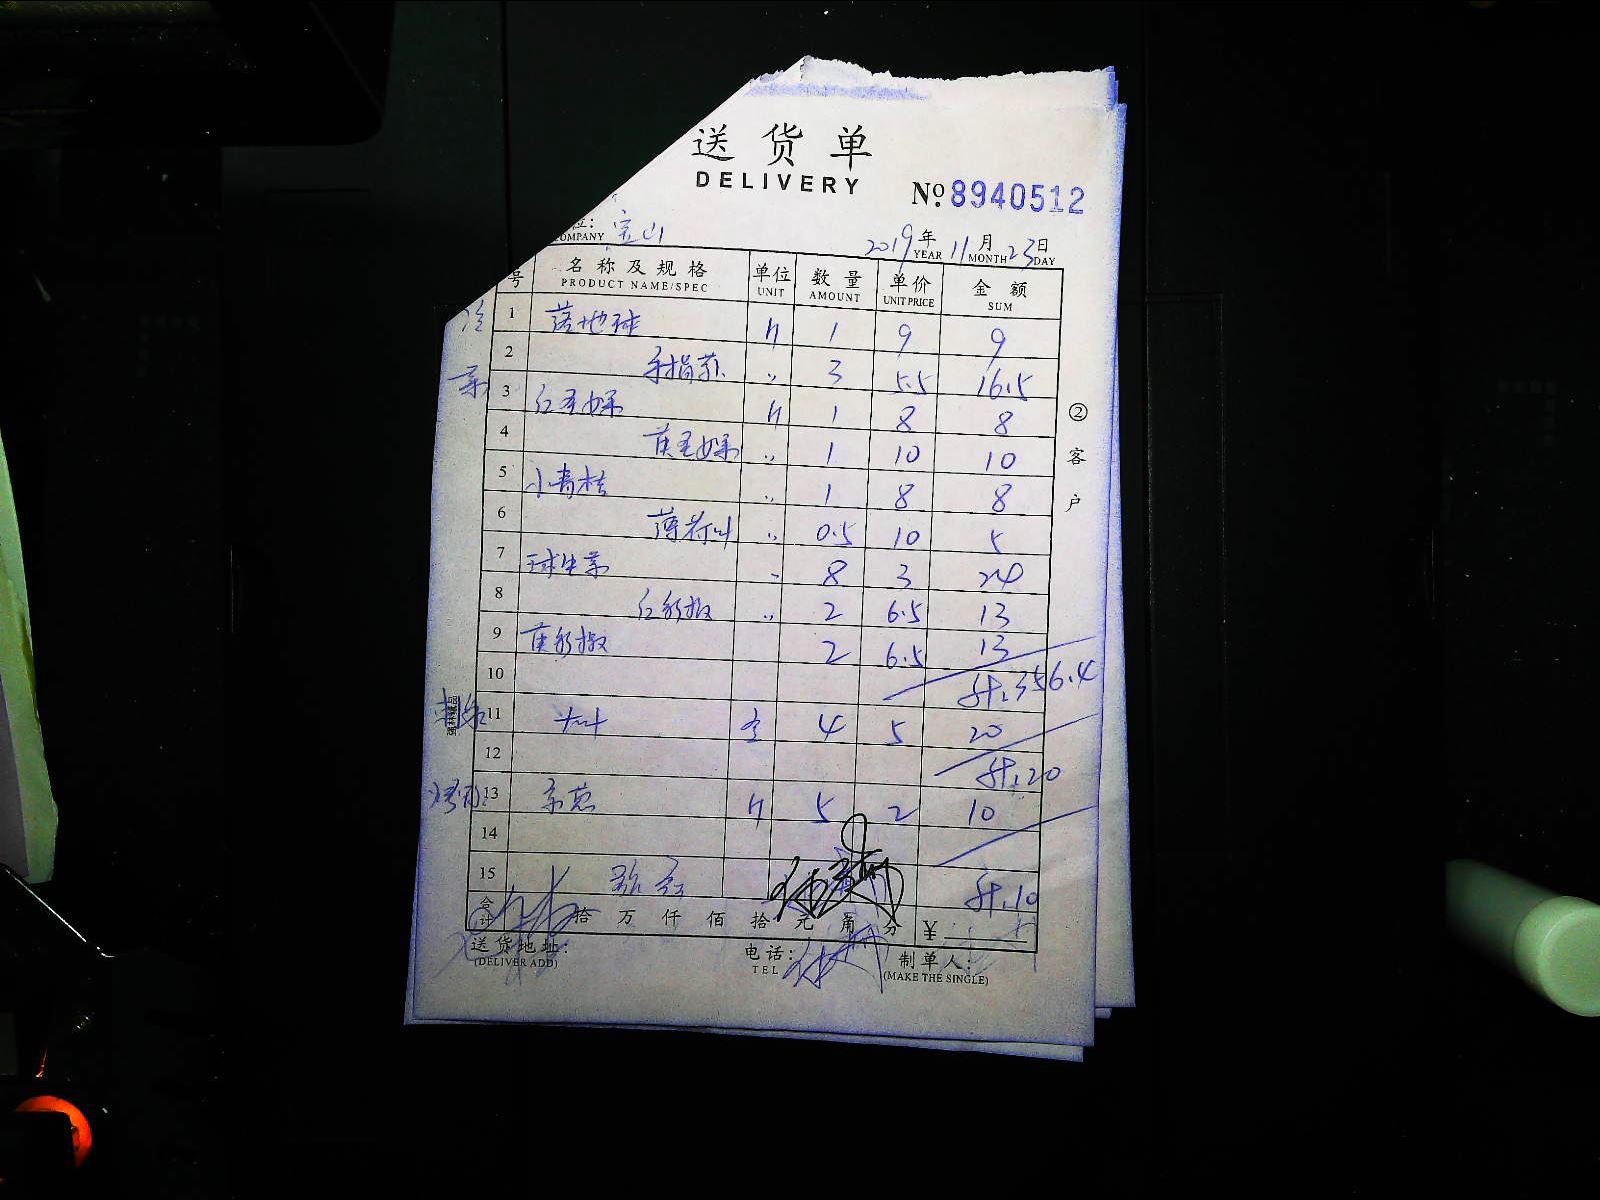 送货单
DELIVERY
No. 8940512
位: 宝山
COMPANY
2019年11月23日
YEAR MONTH DAY
号 名称及规格 单位 数量 单价 金额
PRODUCT NAME/SPEC UNIT AMOUNT UNIT PRICE SUM
1 落地球 斤 1 9 9
2 手指萝卜 〃 3 5.5 16.5
3 红圣女果 斤 1 8 8
4 黄圣女果 〃 1 10 10
5 小青桔 〃 1 8 8
6 薄荷叶 〃 0.5 10 5
7 球生菜 〃 8 3 24
8 红彩椒 〃 2 6.5 13
9 黄彩椒 2 6.5 13
10 计:356.4
11 4 5 20
12 计:20
13 京葱 斤 5 2 10
14
15 计:10
合计 拾 万 仟 佰 拾 元 角 分 ¥
送货地址:
(DELIVER ADD)
电话:
TEL
制单人:
(MAKE THE SINGLE)
②客户